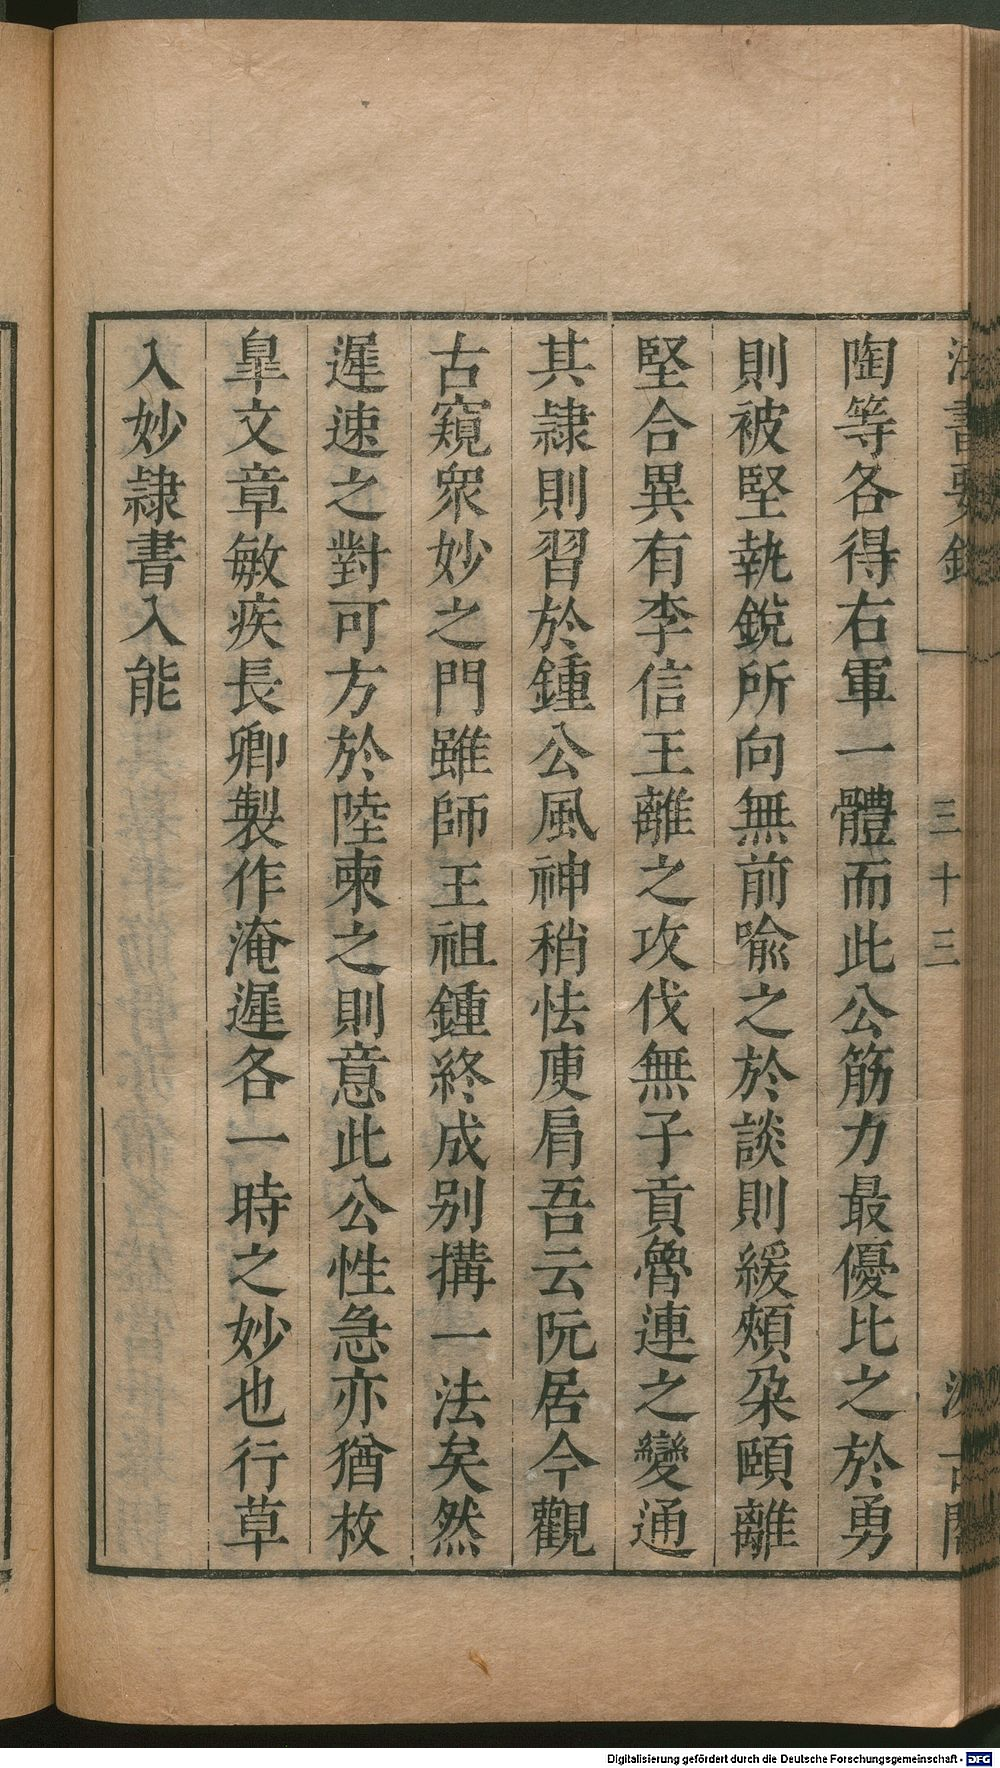 法書要錄
三十三
汲古閣
陶等各得右軍一體而此公筋力最優比之於勇
則被堅執銳所向無前喻之於談則緩頰朶頤離
堅合異有李信王離之攻伐無子貢魯連之變通
其隷則習於鍾公風神稍怯庾肩吾云阮居今觀
古窺衆妙之門雖師王祖鍾終成别搆一法矣然
遲速之對可方於陸柬之則意此公性急亦猶枚
臯文章敏疾長卿製作淹遲各一時之妙也行草
入妙隷書入能
Digitalisierung gefördert durch die Deutsche Forschungsgemeinschaft - DFG